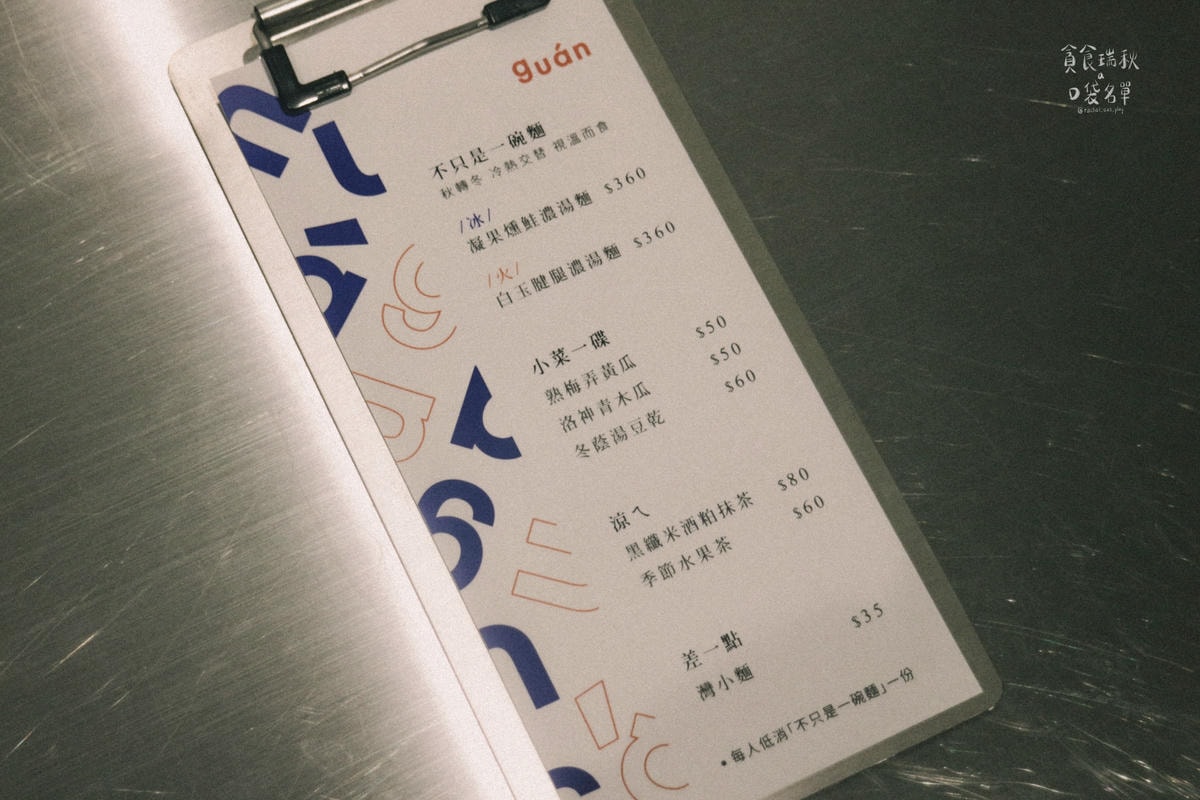 guán
不只是一碗麵
秋轉冬 冷熱交替 視溫而食
/冰/
凝果燻鮭濃湯麵 $360
/火/
白玉腱腿濃湯麵 $360
小菜一碟
熟梅弄黃瓜 $50
洛神青木瓜 $50
冬蔭湯豆乾 $60
涼ㄟ
黑纖米酒粕抹茶 $80
季節水果茶 $60
差一點
灣小麵 $35
•每人低消「不只是一碗麵」一份
貪食瑞秋
a
口袋名單